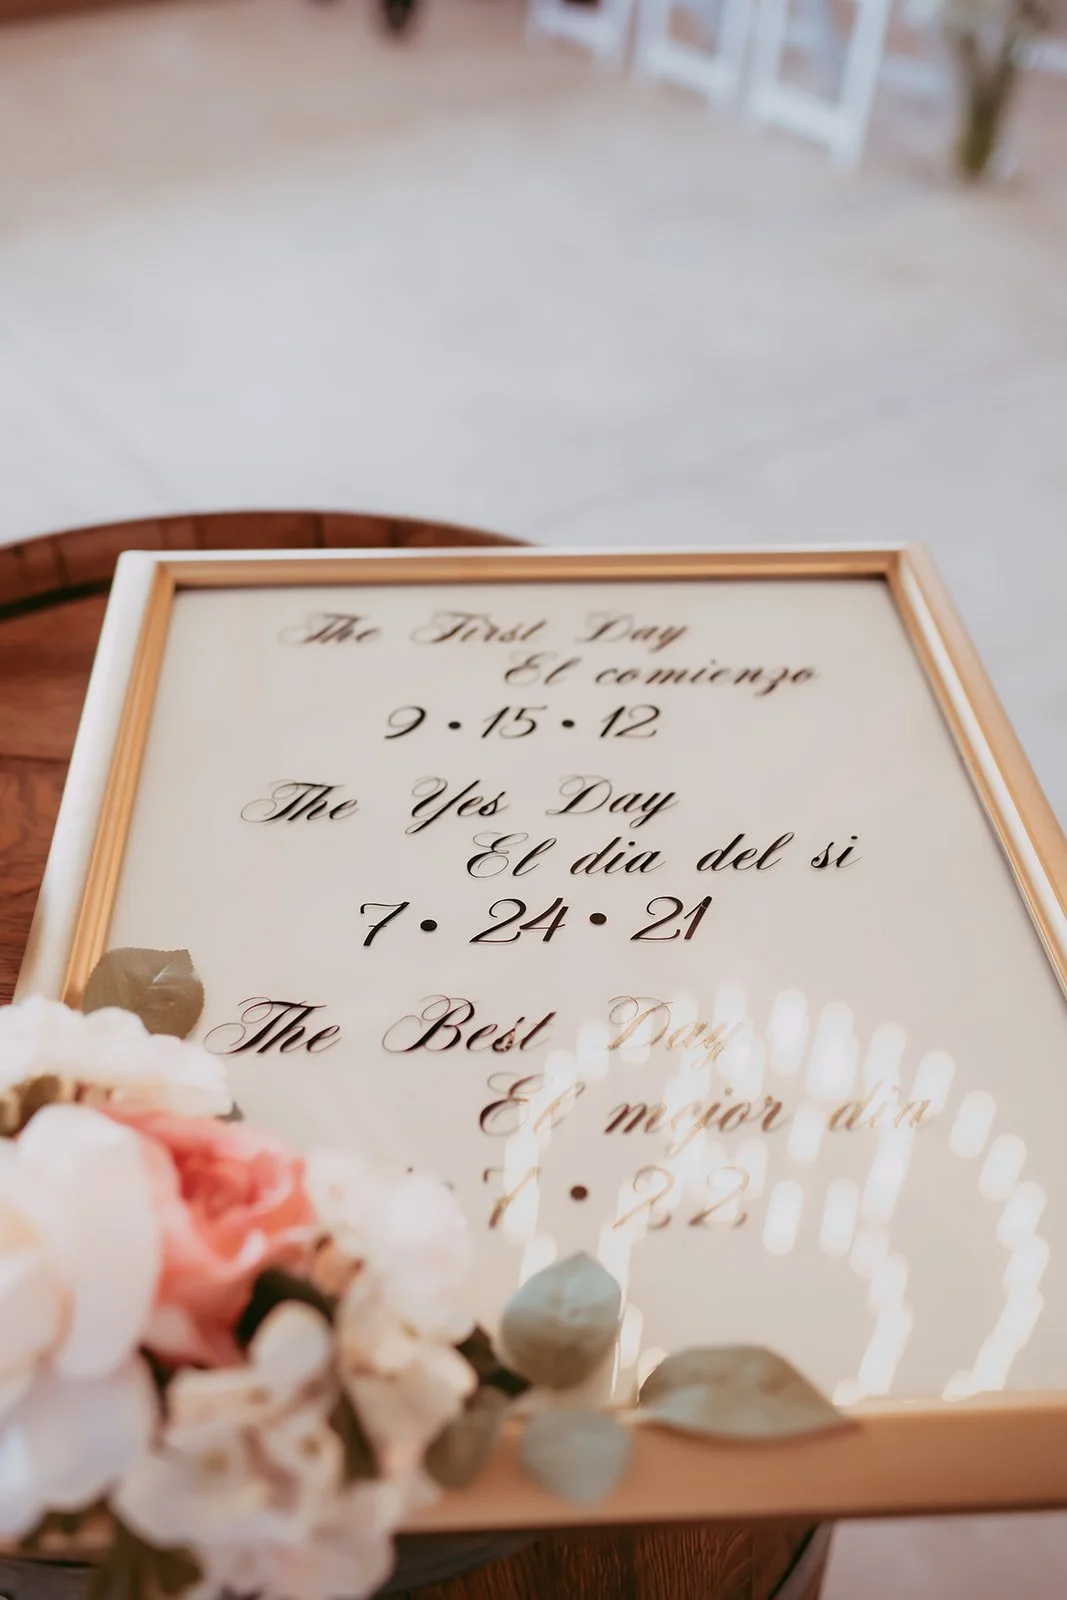 The First Day
El comienzo
9 • 15 • 12
The Yes Day
El dia del si
7 • 24 • 21
The Best Day
El mejor dia
7 • 22